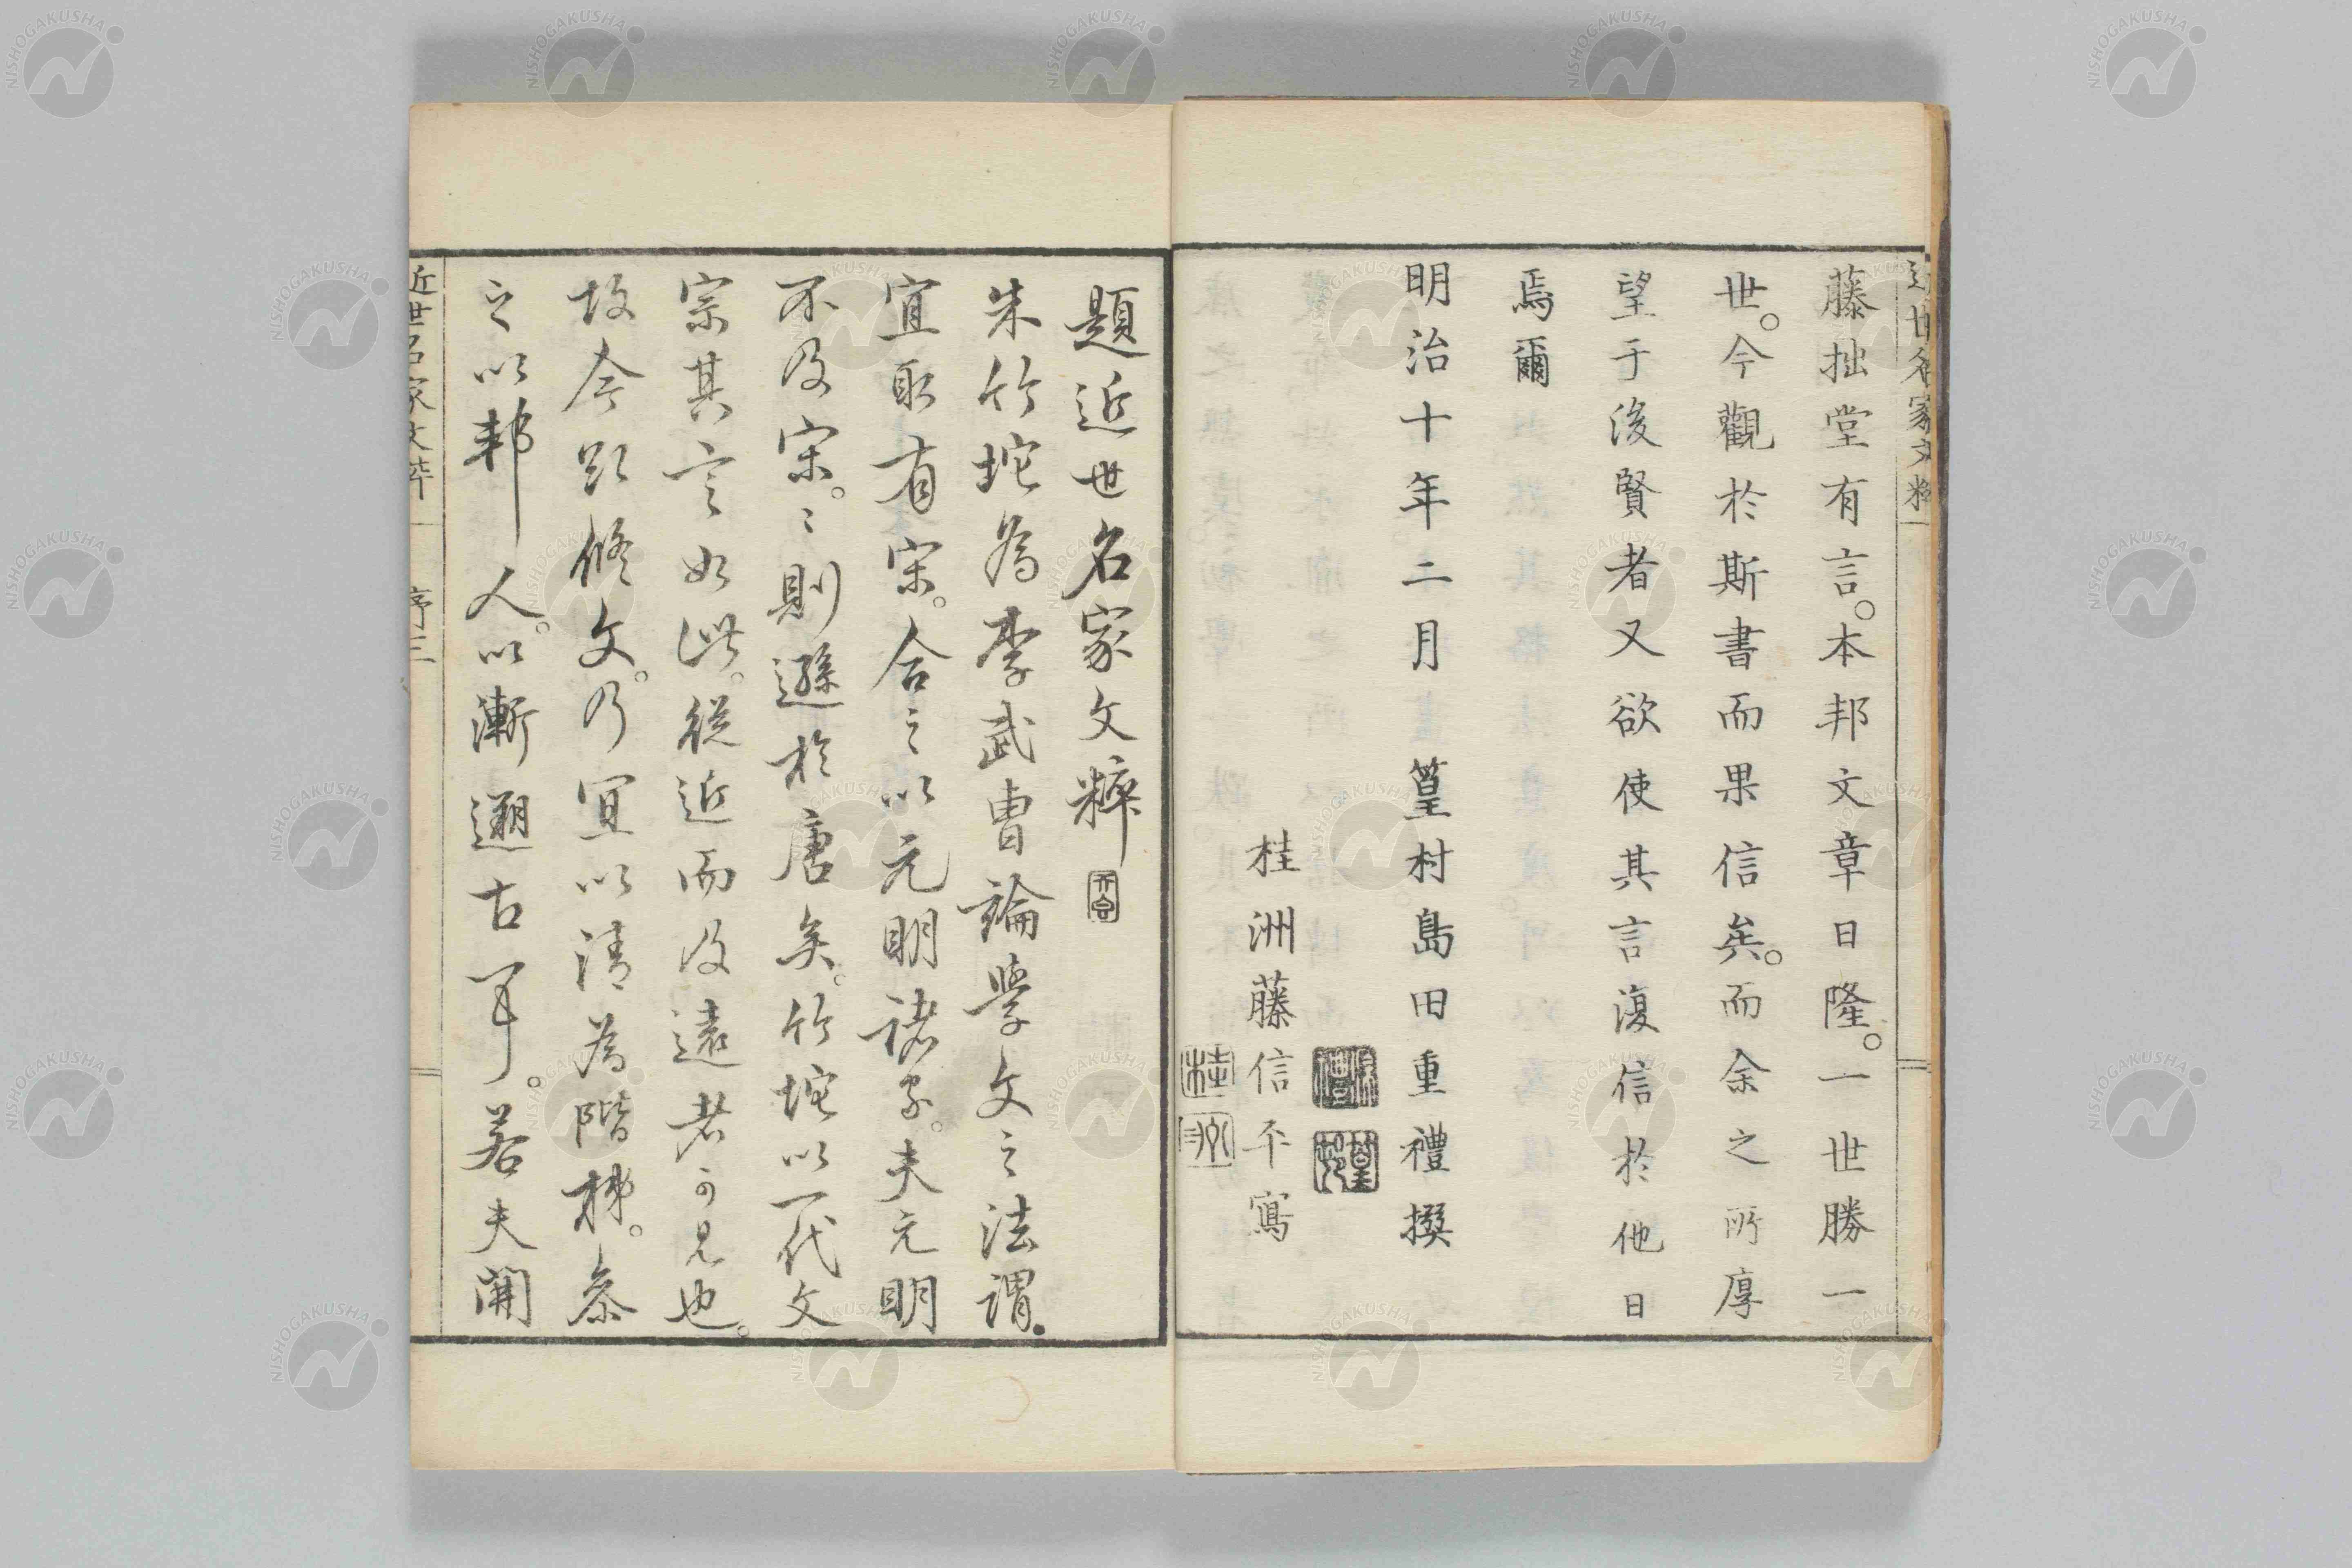 藤拙堂有言。本邦文章日隆。一世勝一
世。今觀於斯書而果信矣。而余之所厚
望于後賢者又欲使其言復信於他日
焉爾
明治十年二月　篁村島田重禮撰
桂洲藤信平寫
題近世名家文粹
朱竹垞為李武曹論學文之法謂.
宜取有宋。合之以元明諸家。夫元明
不及宋。〻則遜於唐矣。竹垞以一代文
宗其言如此。從近而及遠者可見也。
故今欲修文。乃宜以清為階梯。參
之以邦人。以漸遡古耳。若夫開
近世名家文粹　序三
NISHOGAKUSHA